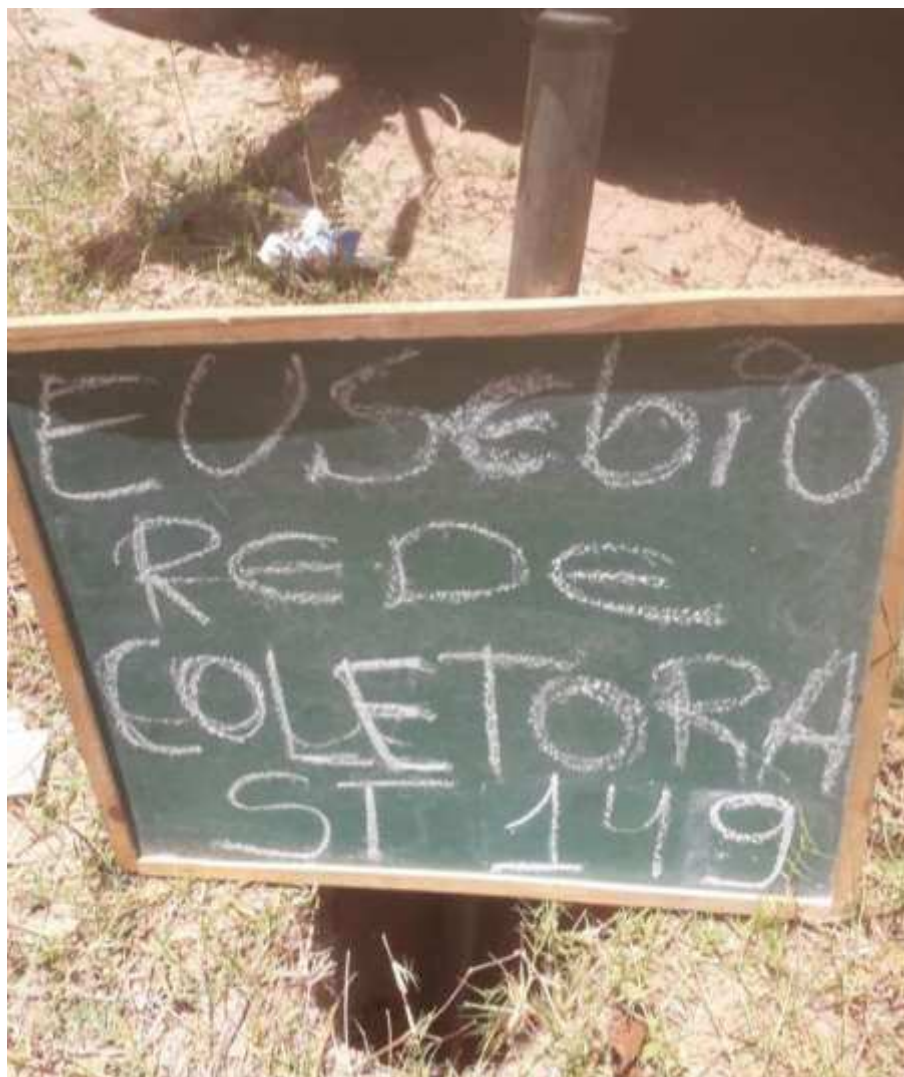 EUSEbiO
REDE
COLETORA
ST 149